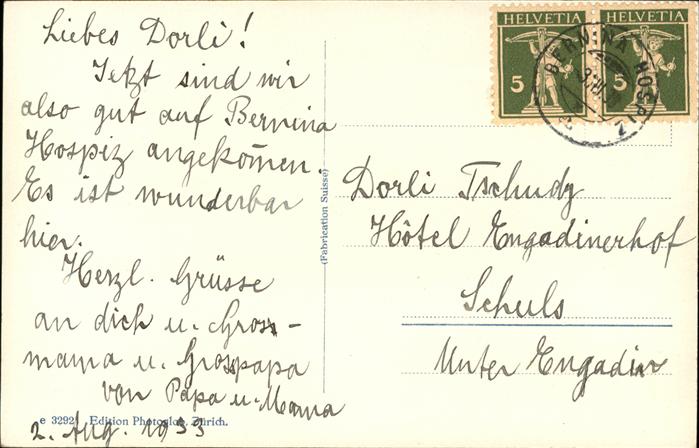 Liebes Dorli!
Jetzt sind wir
also gut auf Bernina
Hospiz angekom̄en.
Es ist wunderbar
hier.
Herzl. Grüsse
an dich u. Gross-
mama u. Grosspapa
von Papa u. Mama
2. Aug. 1933
e 3292 Edition Photoglob, Zürich.
(Fabrication Suisse)
HELVETIA
5
HELVETIA
5
BERNINA HOSPIZ
Dorli Tschudy
Hôtel Engadinerhof
Schuls
Unter Engadin